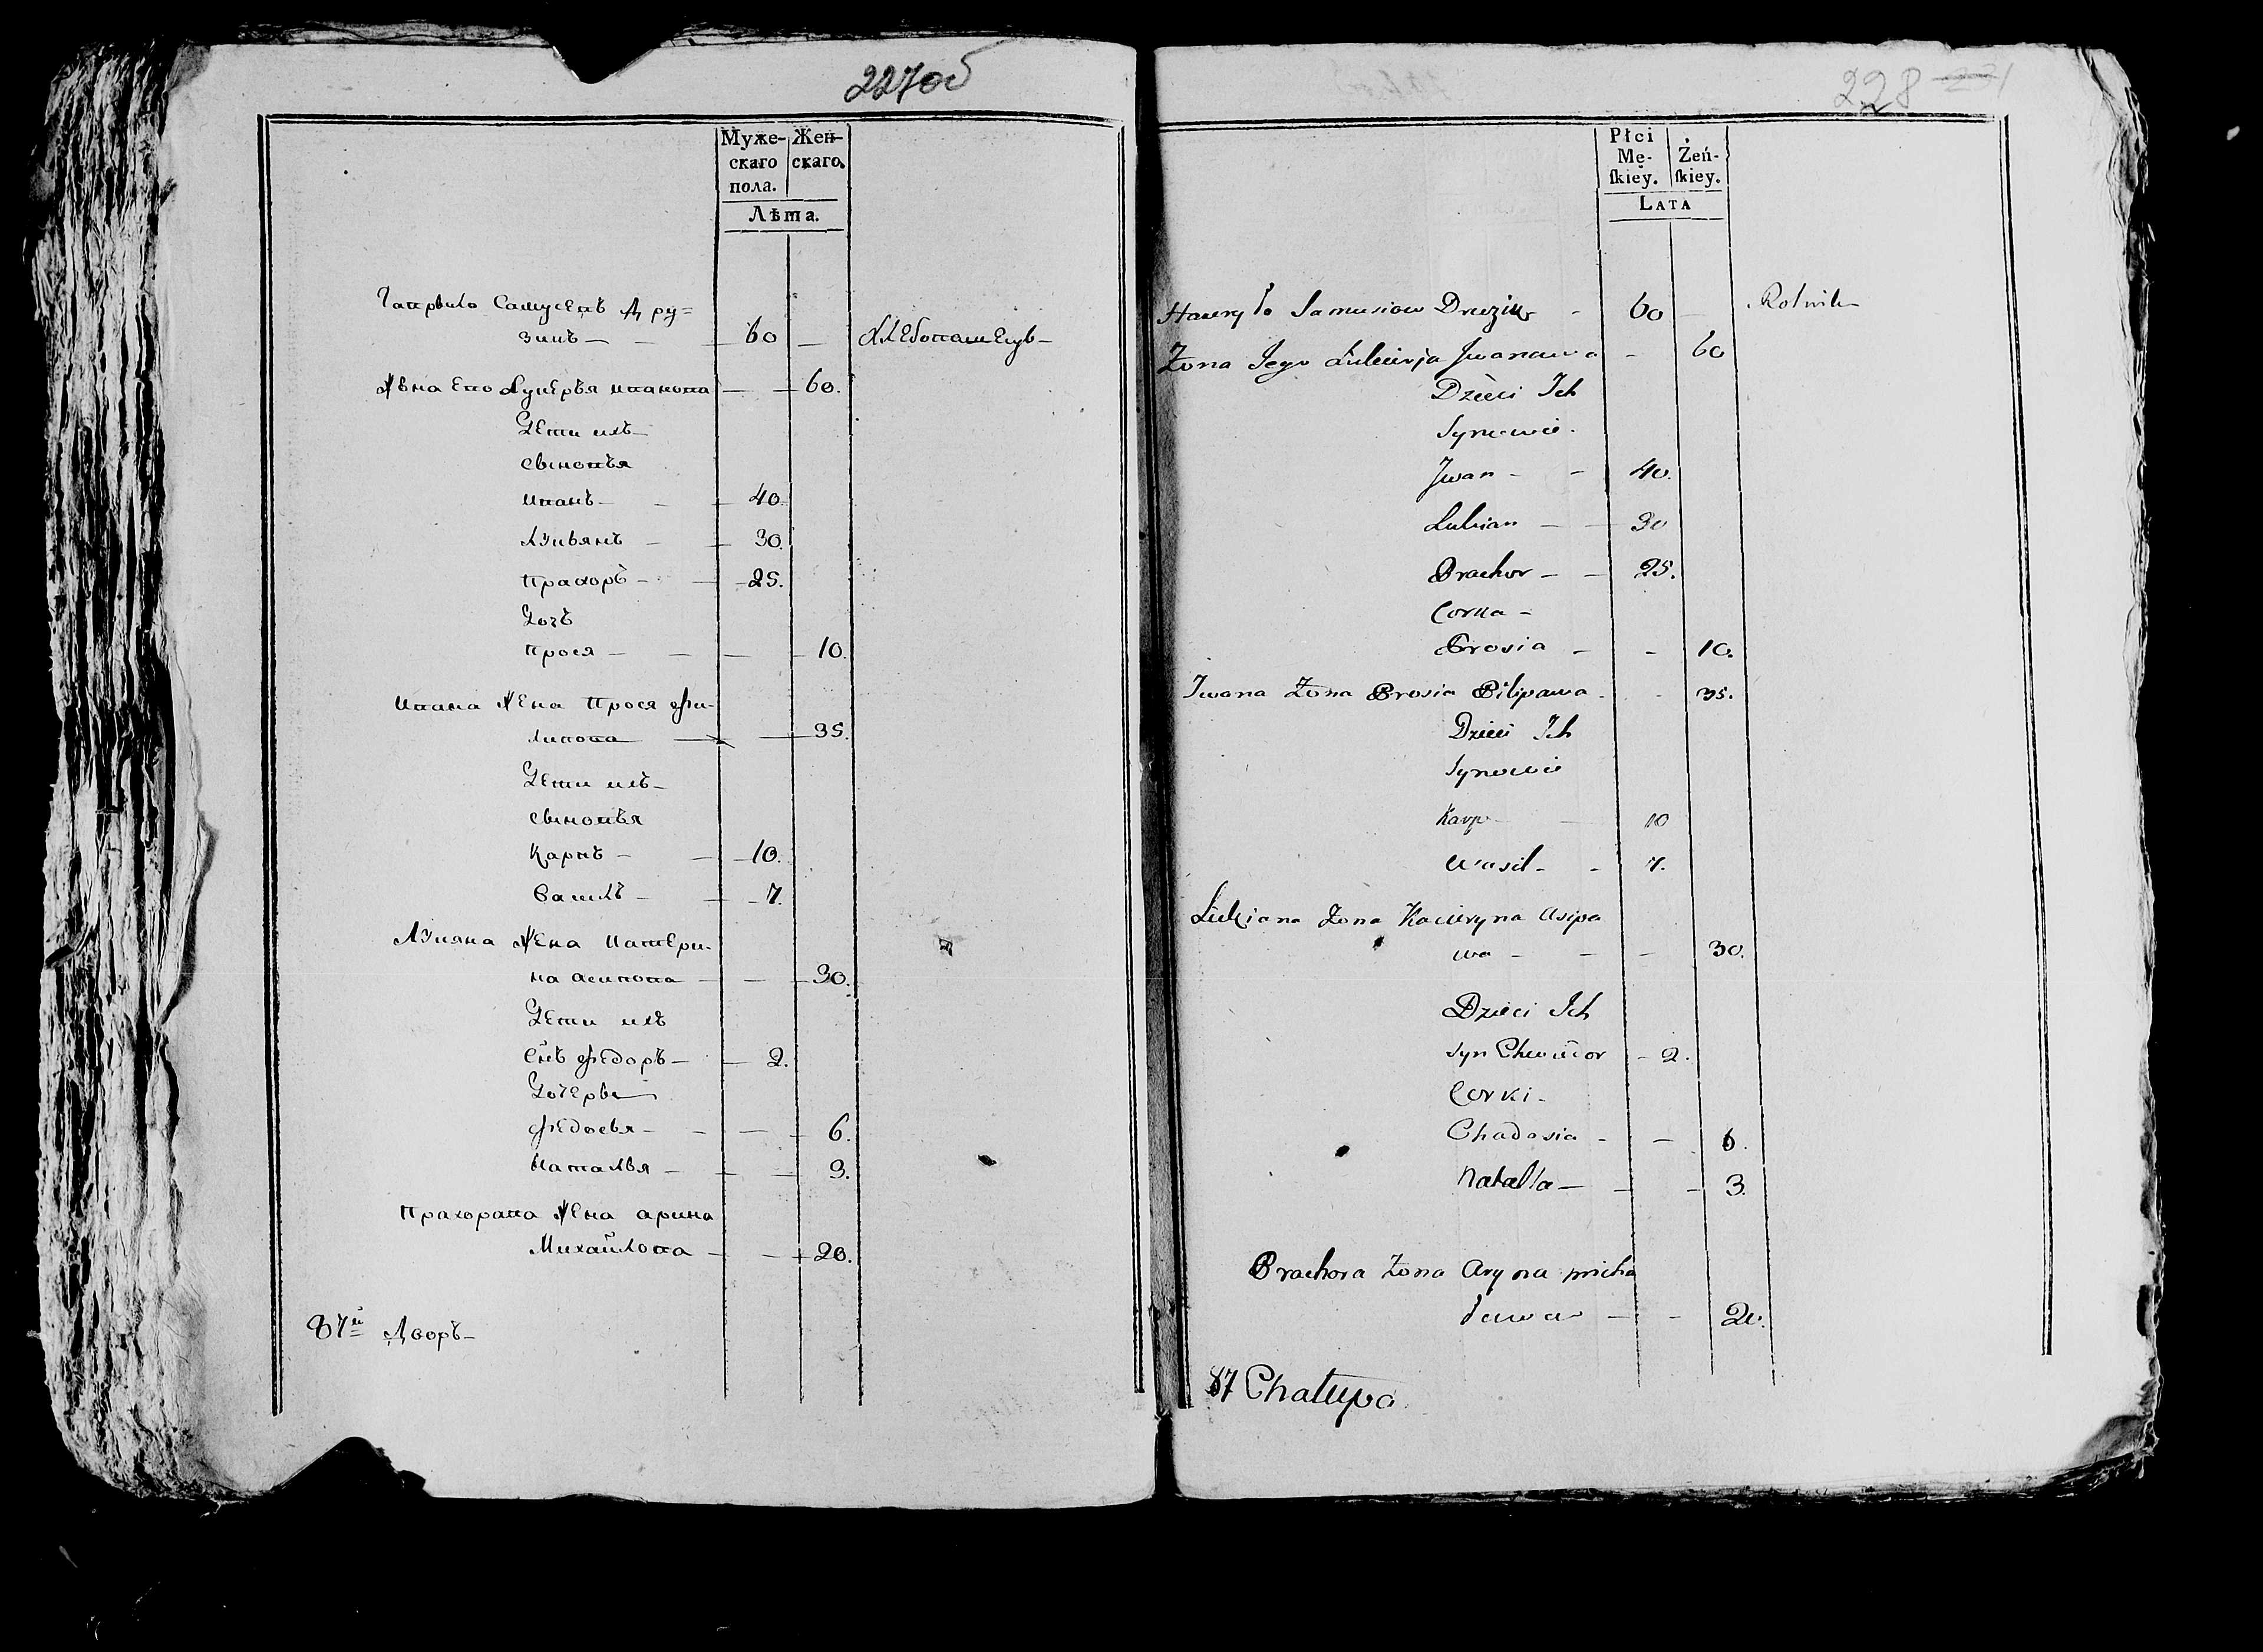 227об
Муже-
скаго
пола.
Жен-
скаго.
Лѣта.
Гаврило Самусевъ Дру=
зикъ — 60 — Хлебопашецъ —
Жѣна Его Лукерья иванова — 60.
Дети ихъ —
сыновья
иванъ — 40
Лукьянъ — 30.
Прахоръ — 25.
Дочь
Прося — 10.
ивана Жена Прося Фи-
липова — 35.
Дети ихъ —
сыновья
Карпъ — 10.
Василь — 7.
Лукяна Жена Катери-
на асипова — 30.
Дети ихъ
Снъ Федоръ — 2.
Дочеры
Федосья — 6.
Наталья — 3.
Прахорава Жена арина
Михайлова — 20.
87й Дворъ —
228
Płci
Mę-
ſkiey.
Żeń-
ſkiey.
LATA
Hawryło Samusiow Druzik - 60 Rolnik
Żona Jego Łukierja Jwanawa - 60
Dzieci Ich
Synowie.
Jwan - - 40.
Łukian - 30
Prachor - - 25.
Corka -
Prosia - - 10.
Jwana Żona Prosia Pilipawa - - 35.
Dzieci Ich
Synowie
Karp 10
Wasil - - 7.
Łukiana Żona Kacieryna Asipa
wa - - - 30.
Dzieci Ich
Syn Chwiedor - 2.
Corki -
Chadosia - - 6.
Natalla - - 3.
Prachora Żona Aryna Micha
ławа - - 20.
87 Chałupa